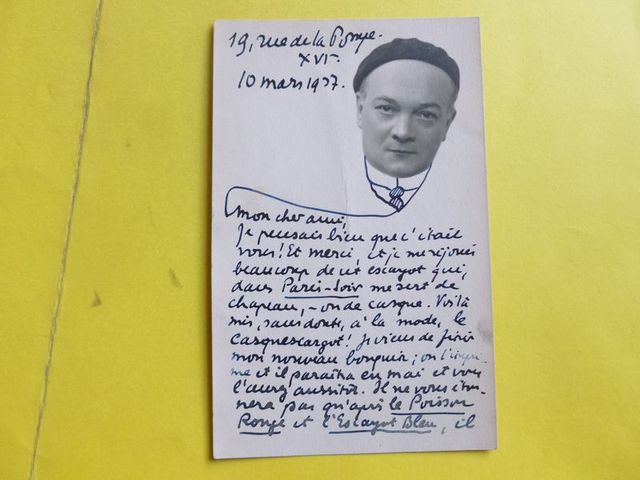 19, rue de la Pompe.
XVIe.
10 mars 1937.
Mon cher ami,
Je pensais bien que c'était
vous! Et merci, et je me réjouis
beaucoup de cet escargot qui,
dans Paris-Soir me sert de
chapeau, - ou de casque. Voilà
mis, sans doute, à la mode, le
casquescargot! Je viens de finir
mon nouveau bouquin; on l'impri-
me et il paraîtra en mai et vous
l'aurez aussitôt. Il ne vous éton-
nera pas qu'après le Poisson
Rouge et l'Escargot Bleu, il